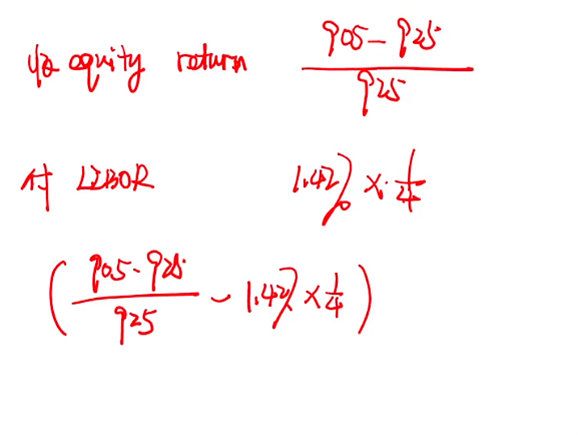 收 equity return (905 - 925)/925
付 LIBOR 1.42% × 1/4
( (905 - 925)/925 - 1.42% × 1/4 )